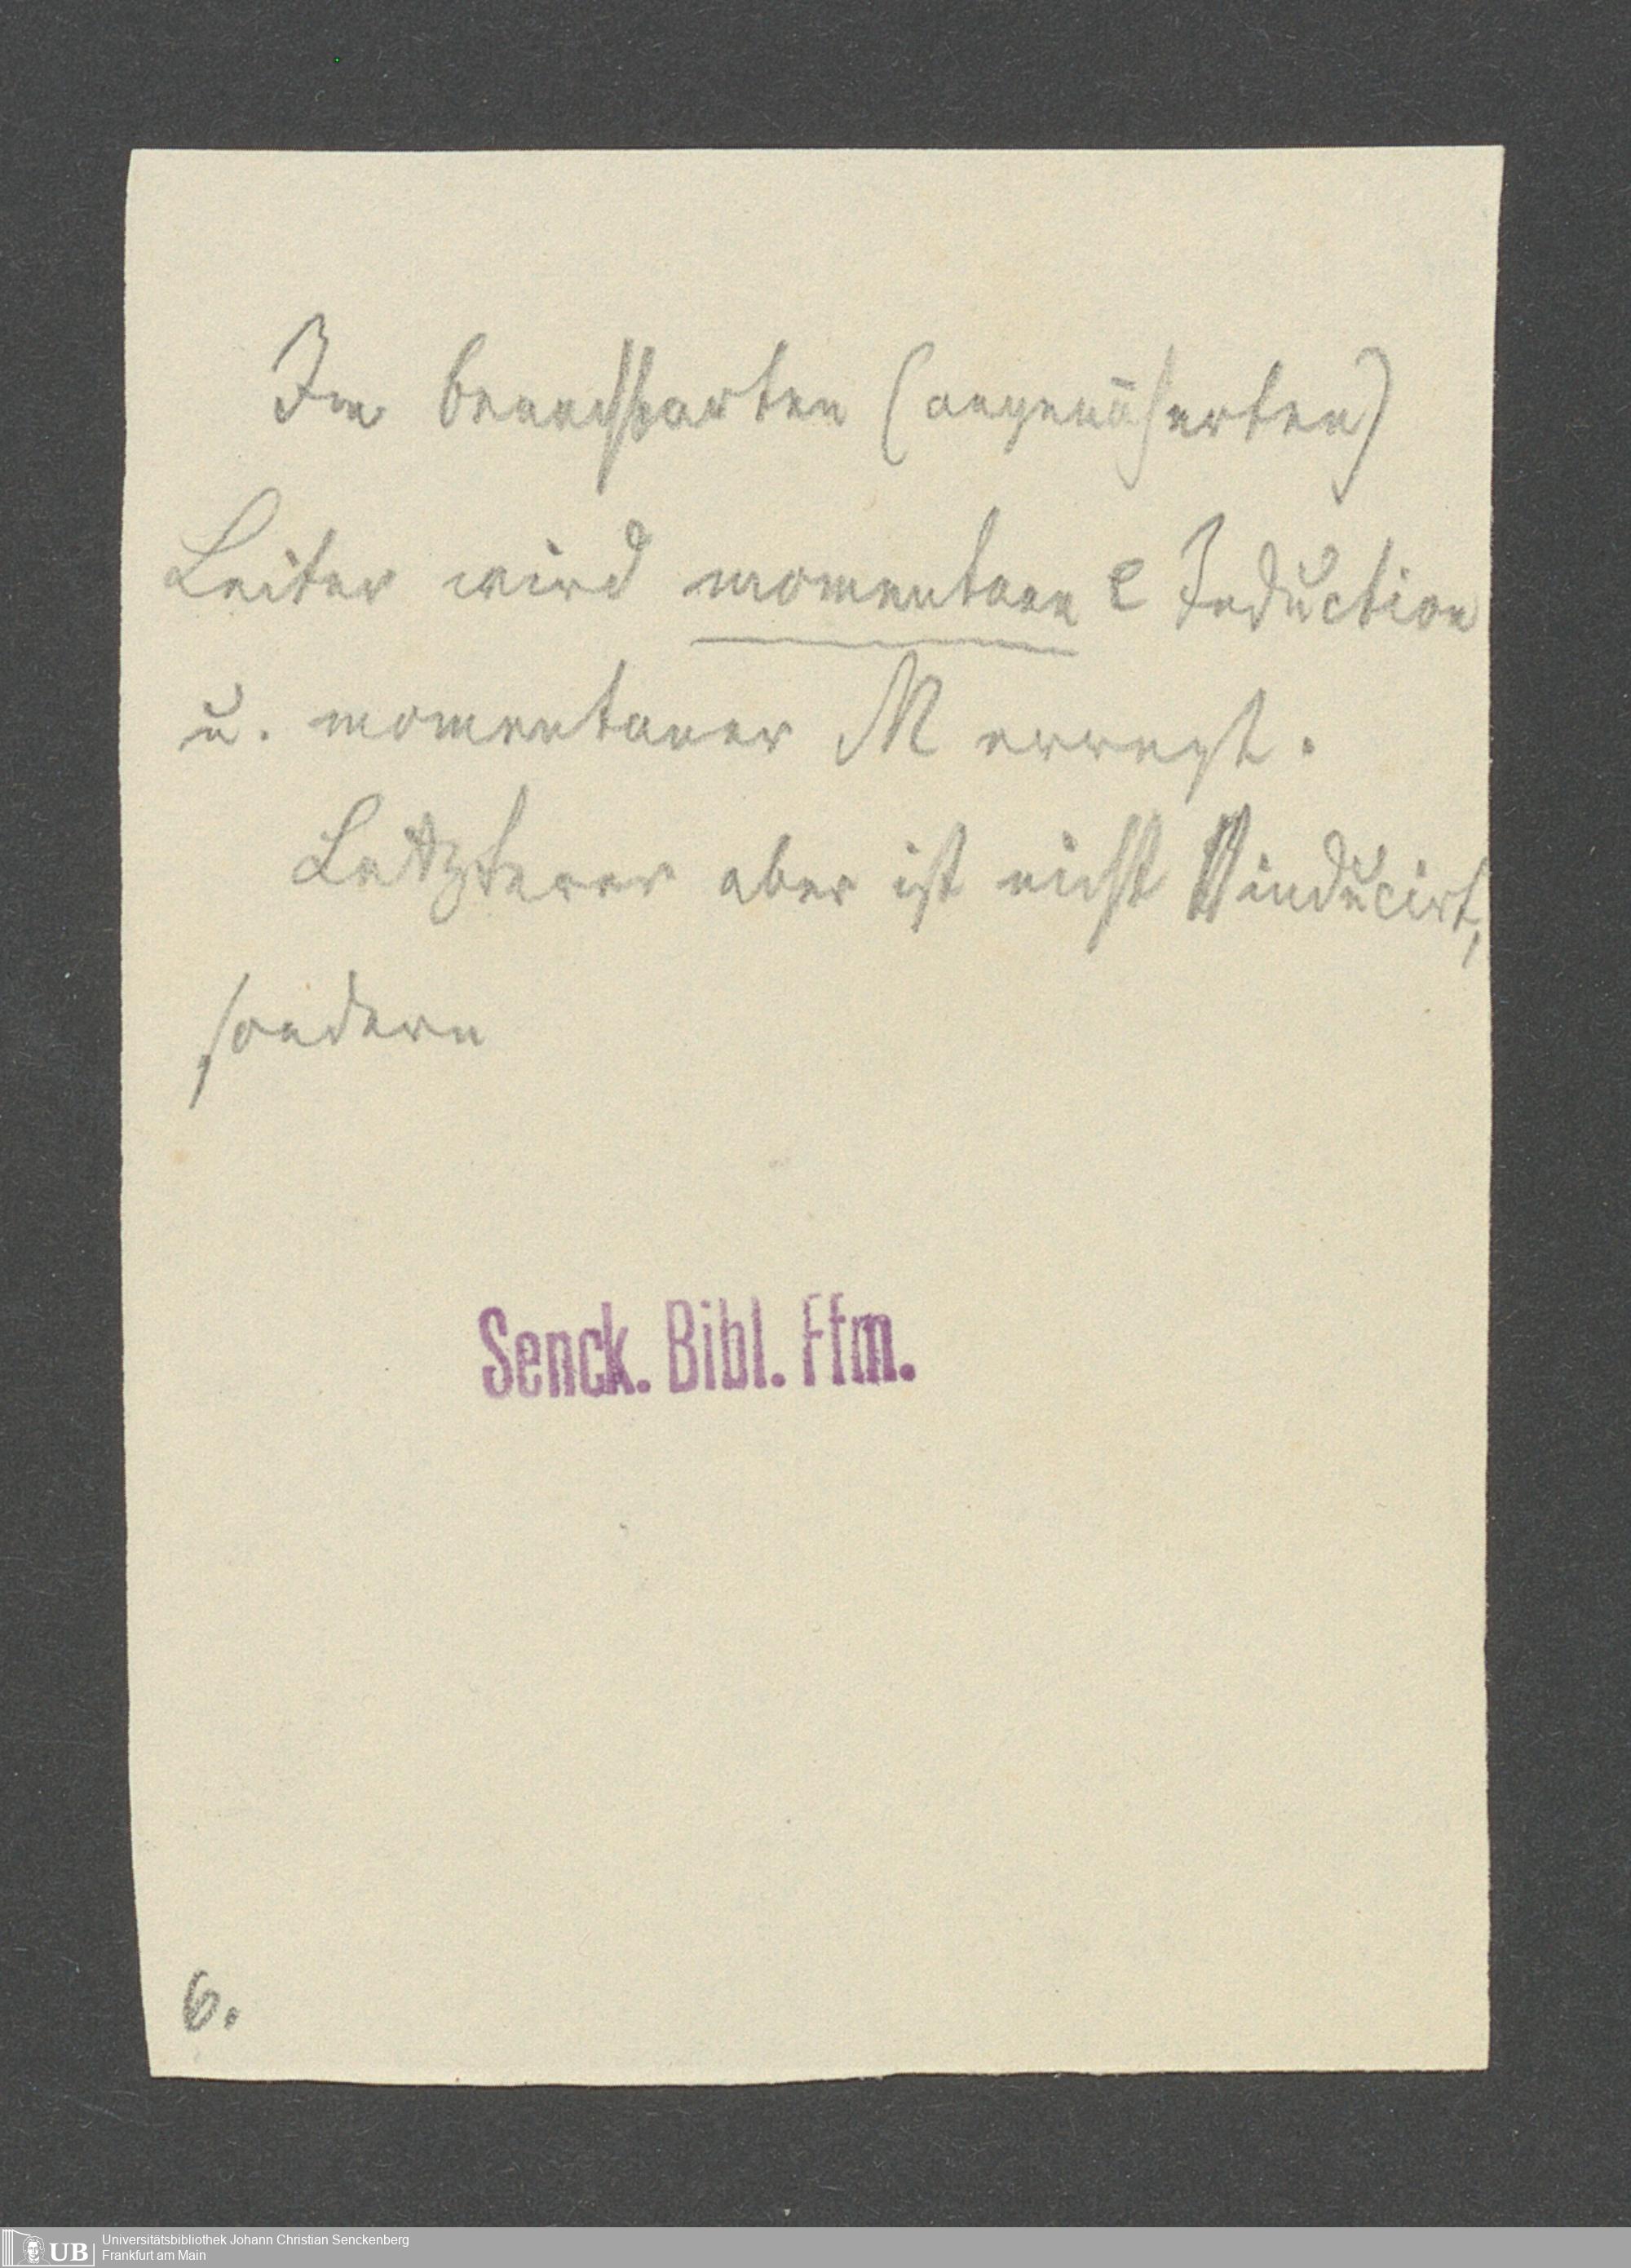 Im benachbarten (angenäherten)
Leiter wird momentane e Induction
u. momentaner M erregt.
Letzterer aber ist nicht inducirt,
sondern
Senck. Bibl. Ffm.
6.
UB
Universitätsbibliothek Johann Christian Senckenberg
Frankfurt am Main